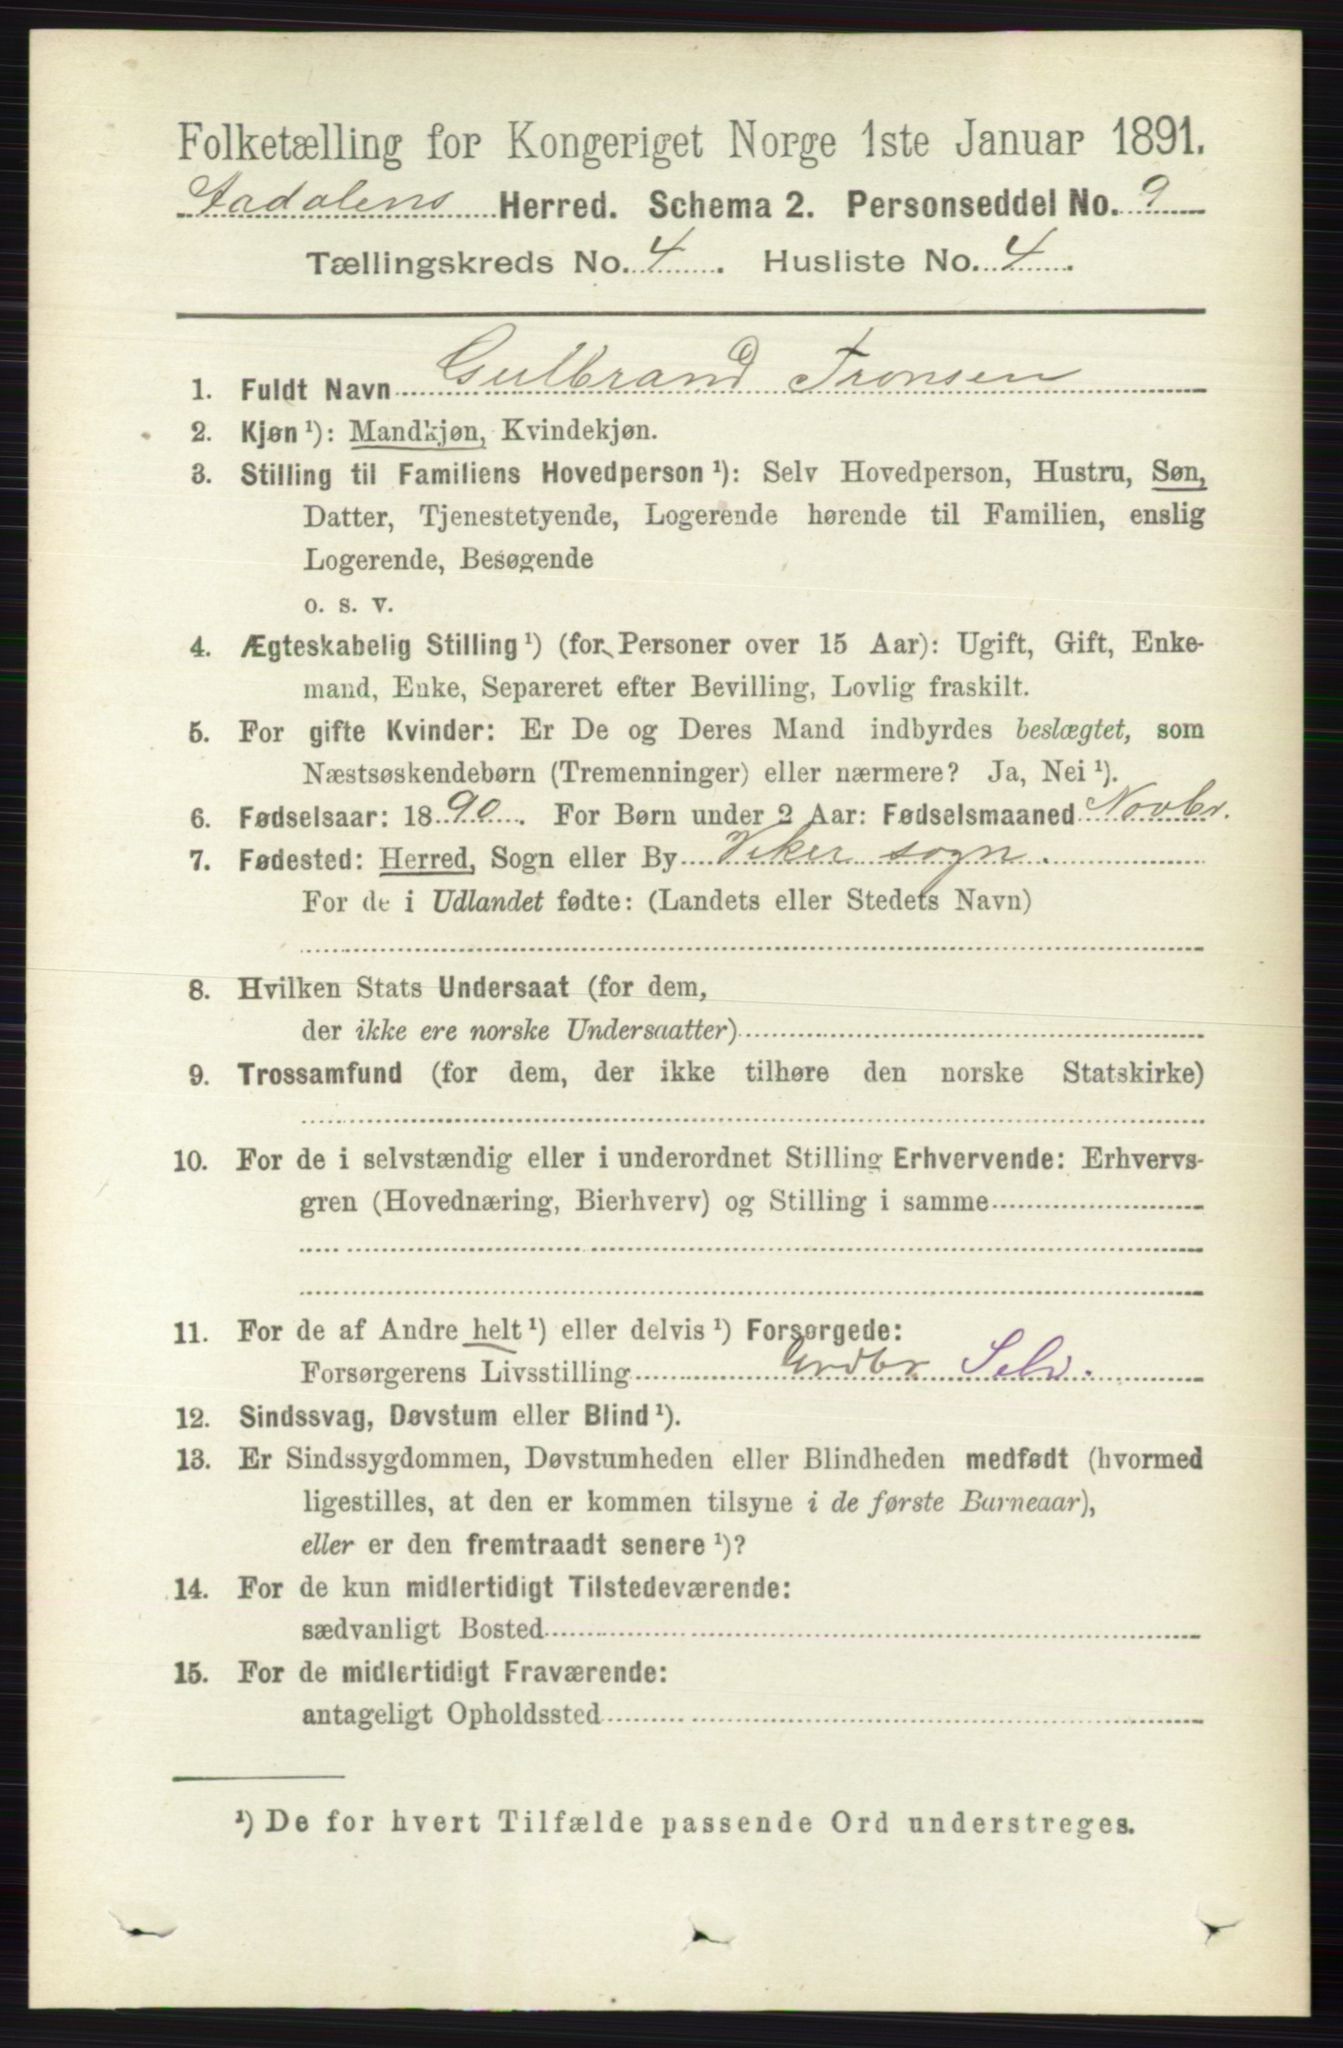 Folketælling for Kongeriget Norge 1ste Januar 1891.
Aadalens Herred. Schema 2. Personseddel No. 9
Tællingskreds No. 4. Husliste No. 4.
1. Fuldt Navn Gulbrand Tronsen
2. Kjøn¹): Mandkjøn, Kvindekjøn.
3. Stilling til Familiens Hovedperson¹): Selv Hovedperson, Hustru, Søn,
Datter, Tjenestetyende, Logerende hørende til Familien, enslig
Logerende, Besøgende
o. s. v.
4. Ægteskabelig Stilling¹) (for Personer over 15 Aar): Ugift, Gift, Enke-
mand, Enke, Separeret efter Bevilling, Lovlig fraskilt.
5. For gifte Kvinder: Er De og Deres Mand indbyrdes beslægtet, som
Næstsøskendebørn (Tremenninger) eller nærmere? Ja, Nei¹).
6. Fødselsaar: 1890. For Børn under 2 Aar: Fødselsmaaned Novbr.
7. Fødested: Herred, Sogn eller By Viker sogn.
For de i Udlandet fødte: (Landets eller Stedets Navn)
8. Hvilken Stats Undersaat (for dem,
der ikke ere norske Undersaatter)
9. Trossamfund (for dem, der ikke tilhøre den norske Statskirke)
10. For de i selvstændig eller i underordnet Stilling Erhvervende: Erhvervs-
gren (Hovednæring, Bierhverv) og Stilling i samme
11. For de af Andre helt¹) eller delvis¹) Forsørgede:
Forsørgerens Livsstilling Grdbr Selv.
12. Sindssvag, Døvstum eller Blind¹).
13. Er Sindssygdommen, Døvstumheden eller Blindheden medfødt (hvormed
ligestilles, at den er kommen tilsyne i de første Barneaar),
eller er den fremtraadt senere¹)?
14. For de kun midlertidigt Tilstedeværende:
sædvanligt Bosted
15. For de midlertidigt Fraværende:
antageligt Opholdssted
¹) De for hvert Tilfælde passende Ord understreges.